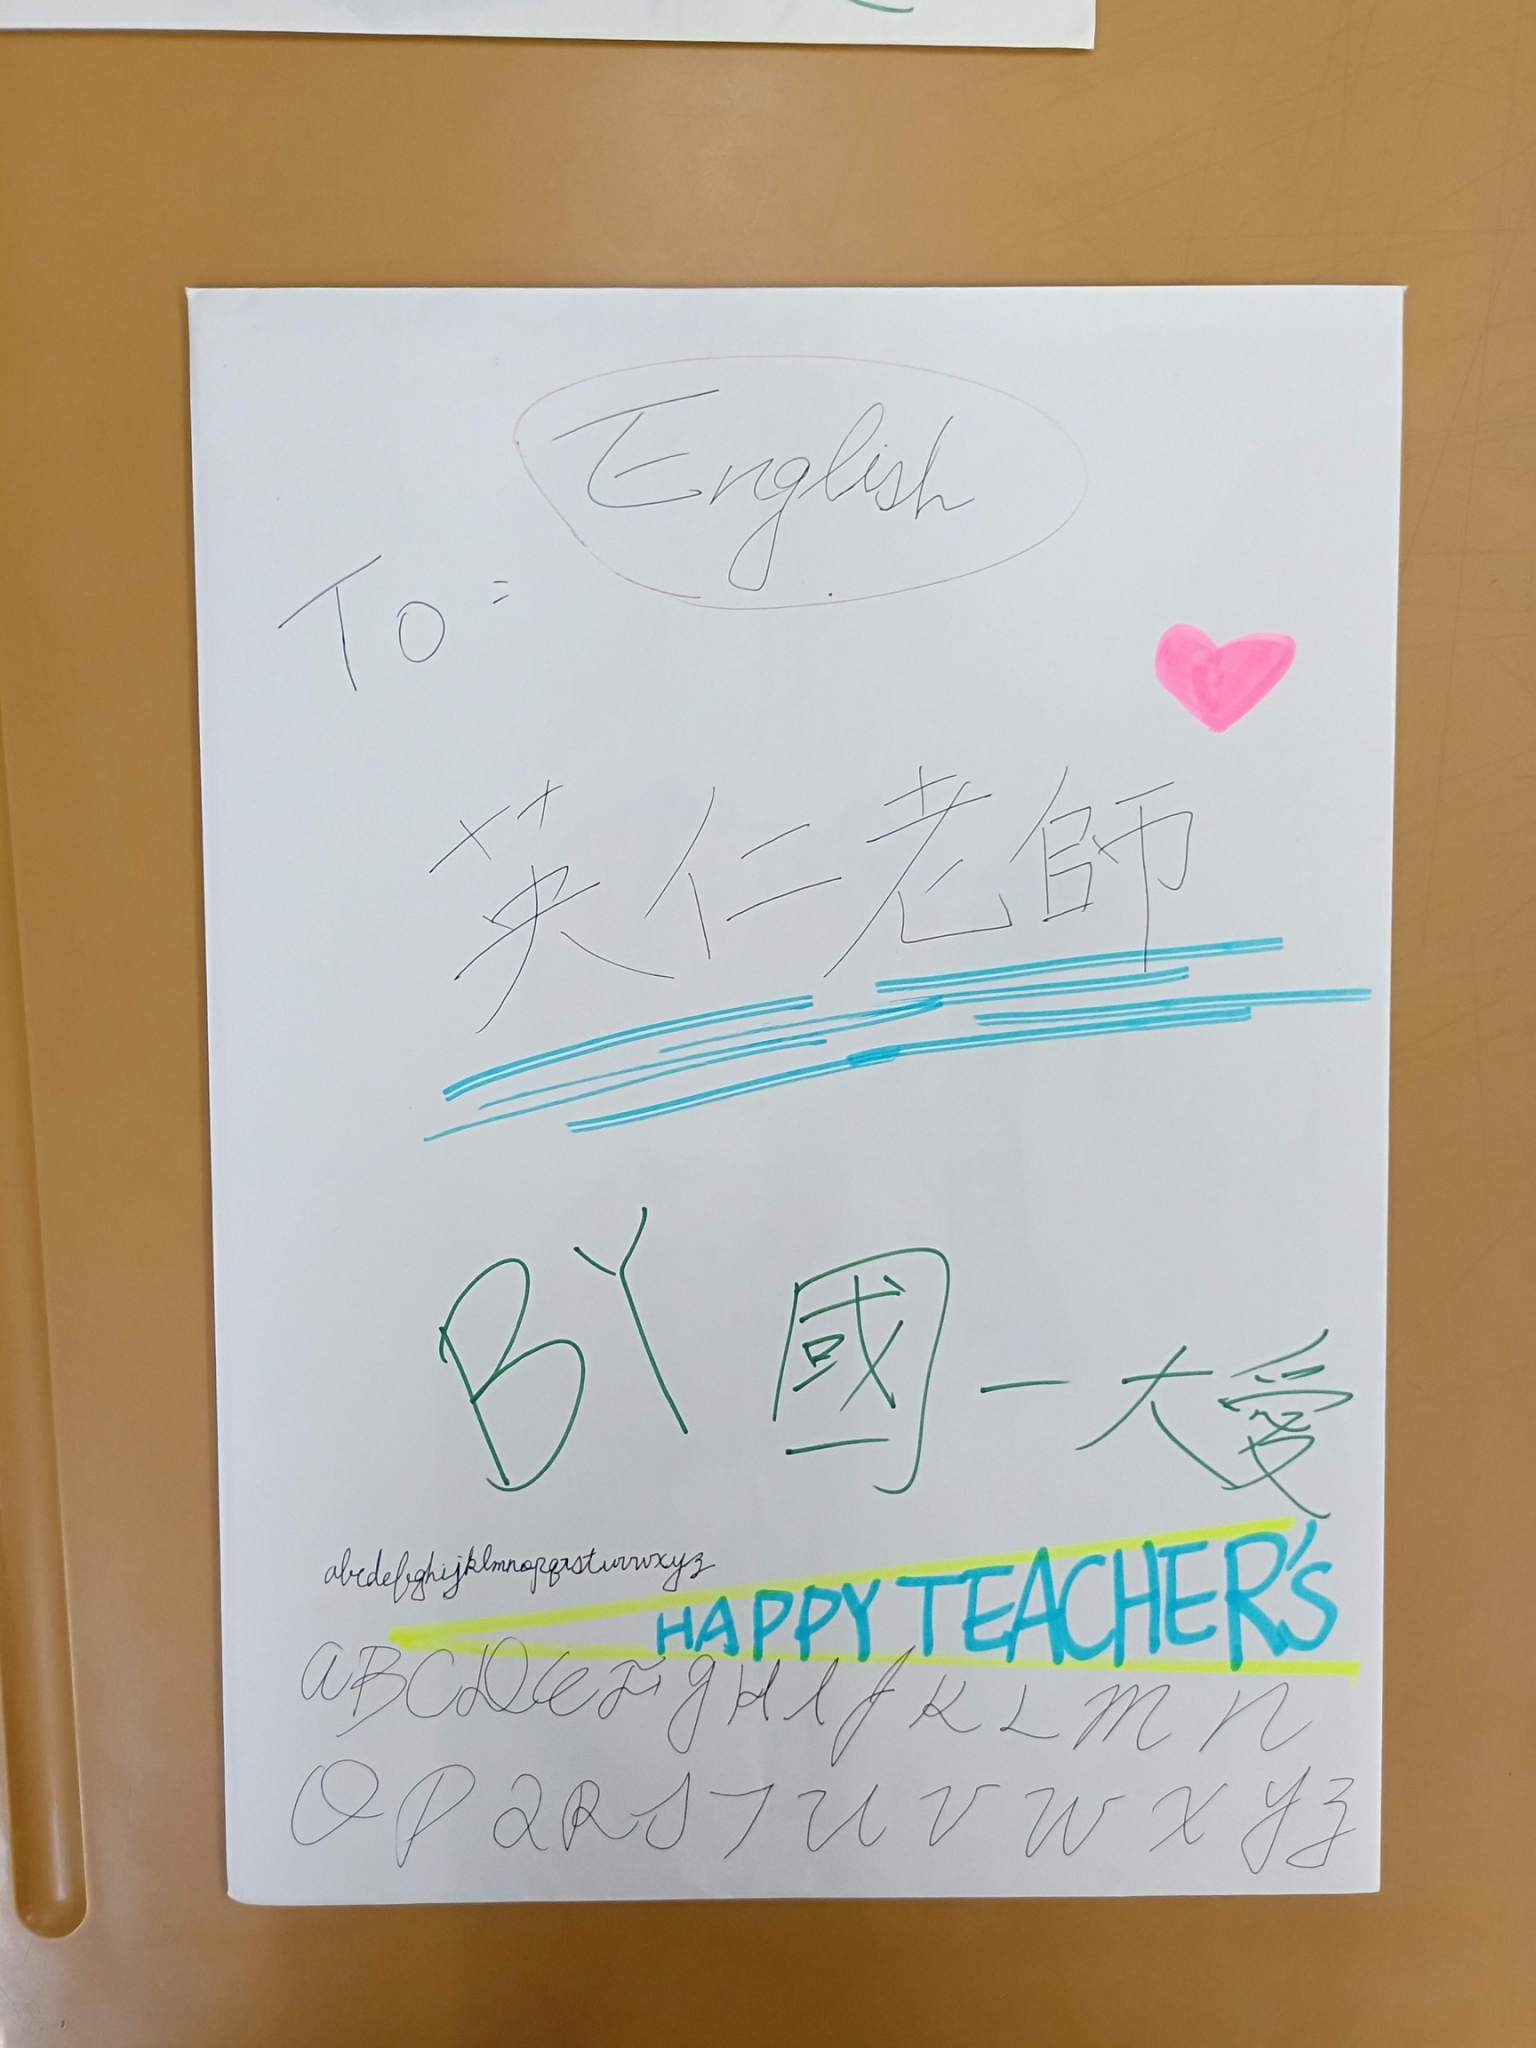 English
To:
英仁老師
BY 國一大愛
abcdefghijklmnopqrstuvwxyz
HAPPY TEACHER'S
ABCDEFGHIJKLMN
OPQRSTUVWXYZ